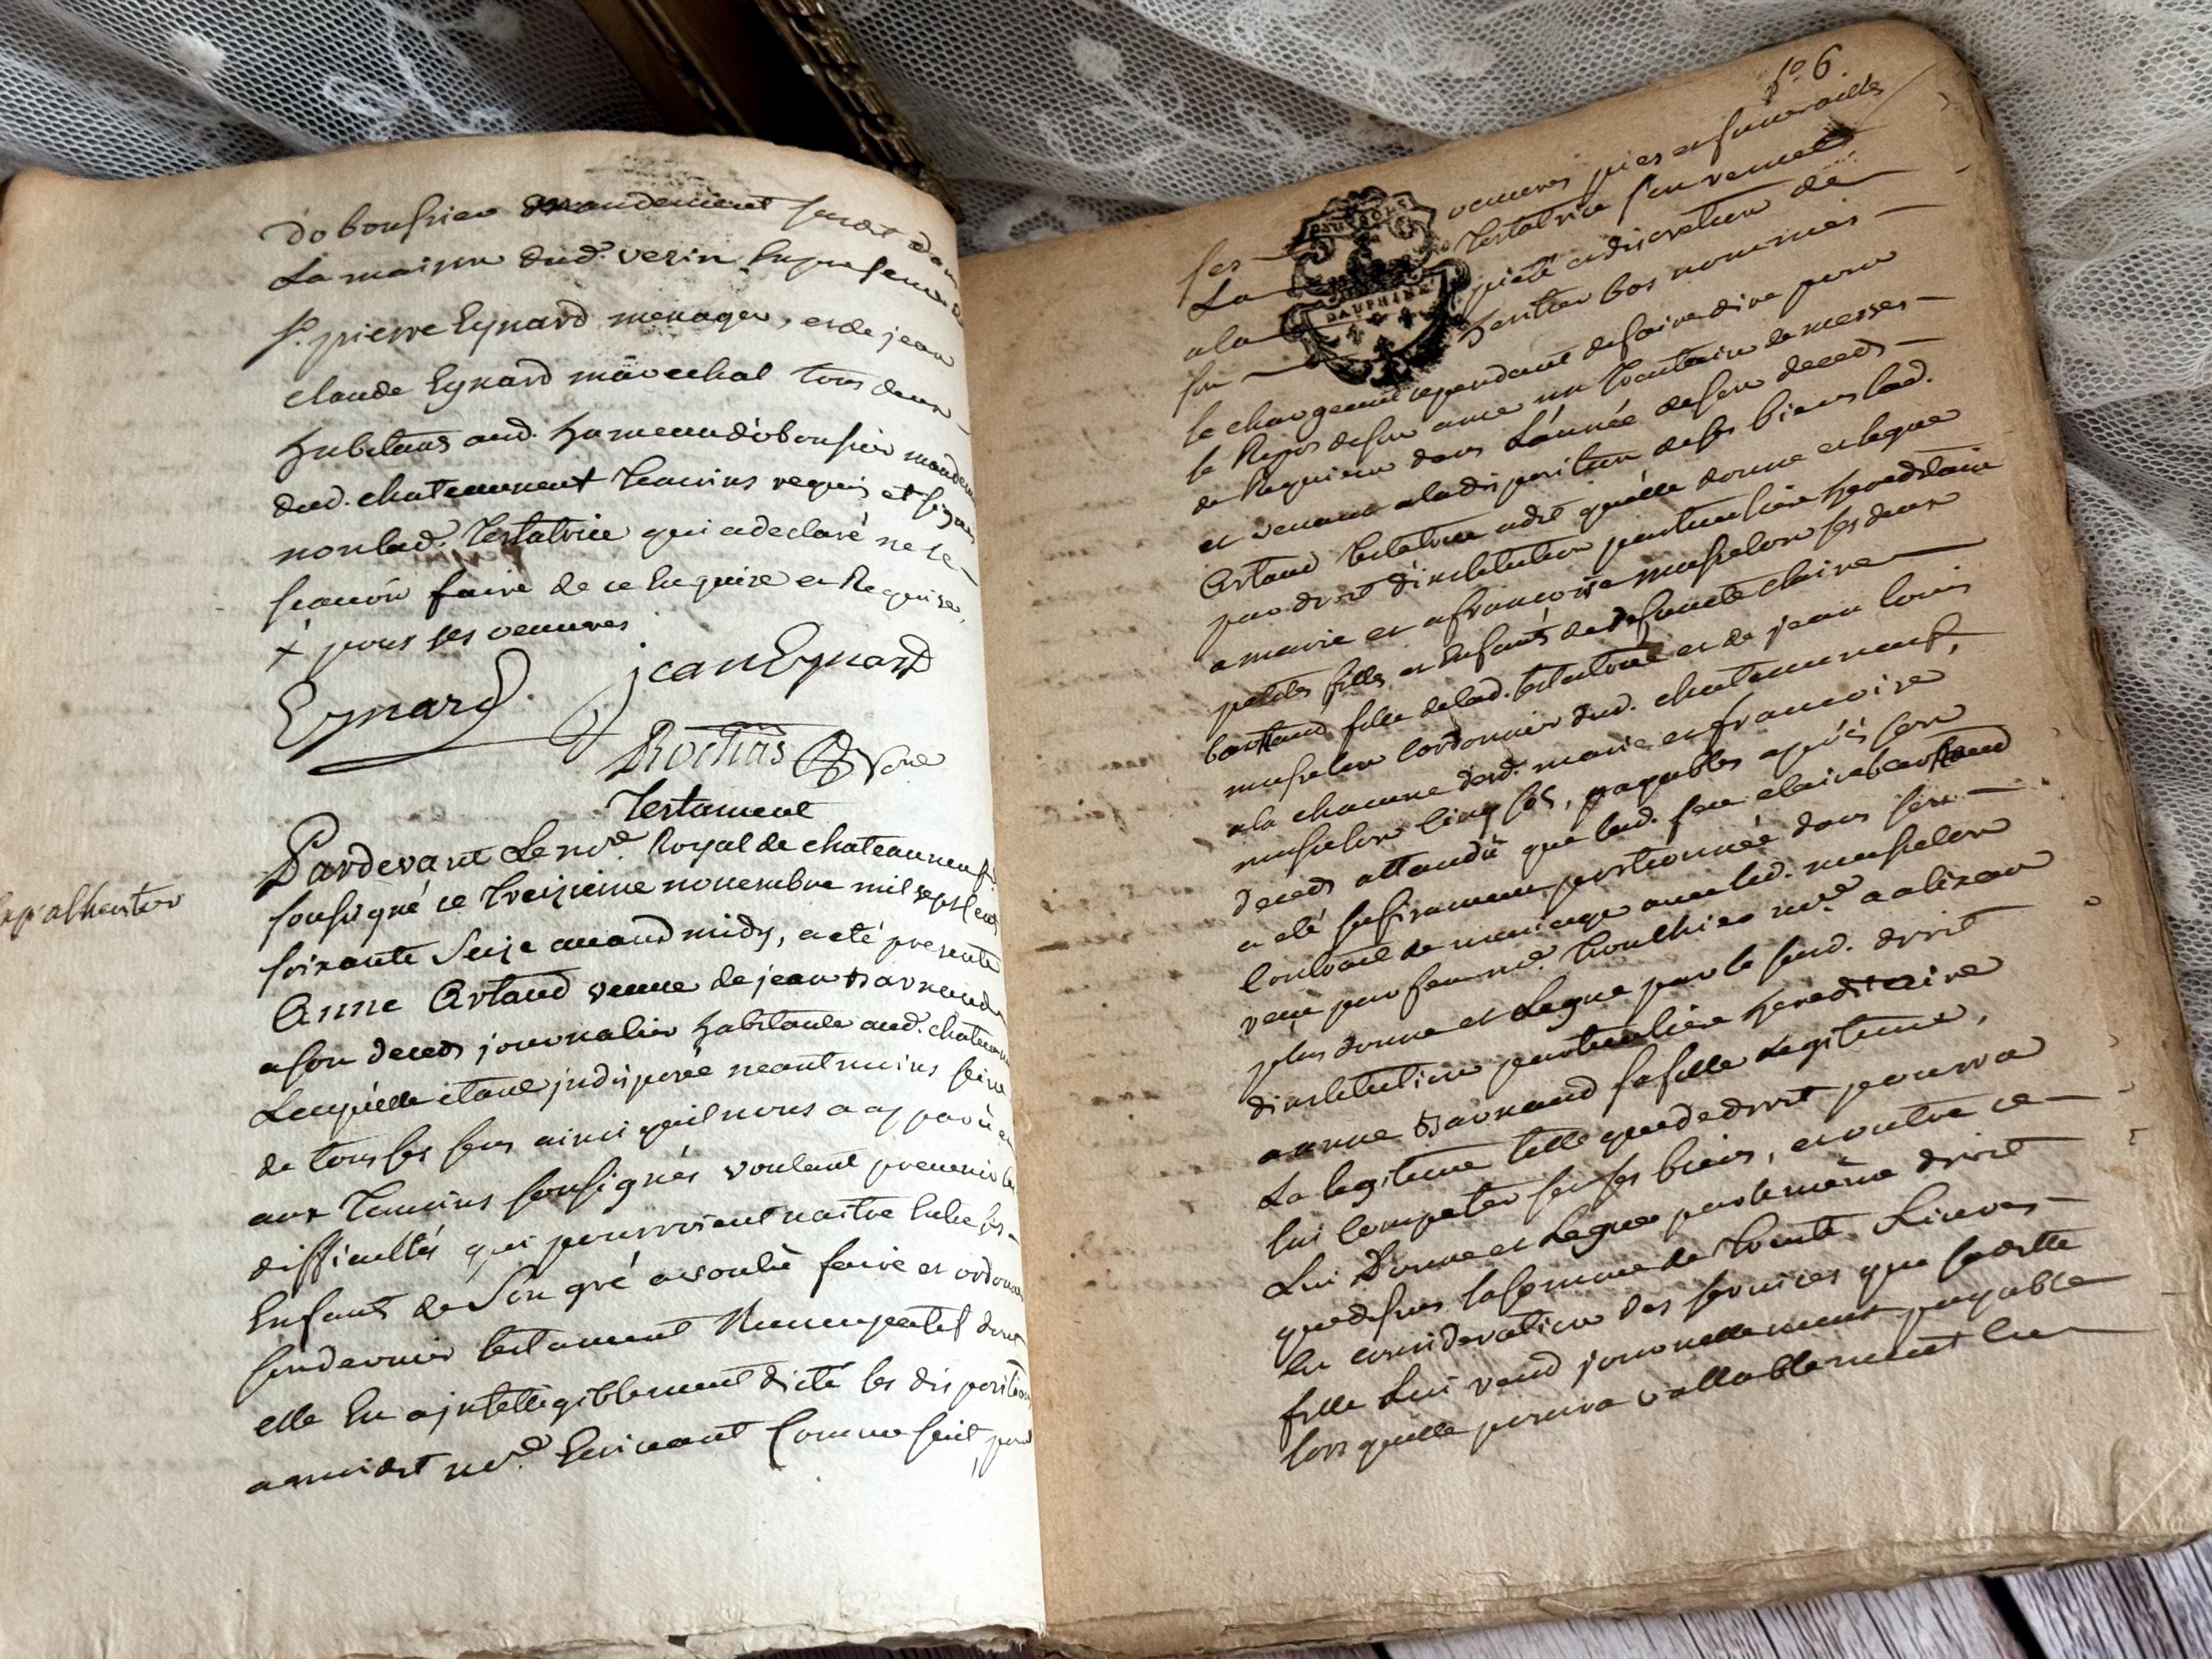 d'obonsier mandement susdit dans
La maison dud. verin En presence de
sr. pierre Eynard menager, et de jean
claude Eynard maréchal tous deux
habitans aud. hameau d'obonsier mande
dud. chateauneuf Temoins requis et signés
non lad. Testatrice qui a declaré ne le
scavoir faire de ce Enquise et Requise,
x pour ses oeuvres
Eynard jean Eynard
Rochas Nore
Testament
Pardevant Le nore Royal de chateauneuf
soussigné ce Treizieme novembre mil sept cent
soixante Seize avand midy, a eté presente
Anne Artaud veuve de jean Barnaud
a son deceds journalier habitante aud. chateau
Laquelle étant indisposée neantmoins saine
de tous ses sens ainsi qu'il nous a apparû et
aux Temoins soussignés voulant prevenir les
difficultés qui pourroient naitre Entre ses
Enfants de Son gré a voulû faire et ordonner
son dernier testament Nuncupatif dont
elle En a intelligiblement dicté les dispositions
a moidit nre. Ecrivant Comme suit, pour
fo. 6
ses oeuvres pies et funerailles
La Testatrice s'en remet
a la pieté et discretion de
son heritier bas nommés
DAUPHINÉ
le chargeant cependant de faire dire pour
le Repos de son ame un Trentain de messes
de Requiem dans L'année de son deceds
et venant a la disposition de ses biens lad.
Artaud testatrice a dit qu'elle donne et legue
par droit d'institution particuliere hereditaire
a marie et a françoise muselon ses deux
petites filles et Enfants de defunte claire
barnaud fille de lad. testatrice et de jean louis
muselon Cordonnier dud. chateauneuf,
a la chacune desd. marie et françoise
muselon Cinq sols, payables aprés son
deceds attandû que lad. feu claire barnaud
a eté suffisament portionnée dans son
Contract de mariage avec led. muselon
receu par feu me. Toulhier nre. a alixan
plus donne et Legue par le susd. droit
d'institution particuliere hereditaire
a anne Barnaud sa fille Legitime,
La legitime telle que de droit pourra
lui Competer sur ses biens, et outre ce
Lui Donne et Legue par le même droit
que dessus la somme de Trente Livres
En consideration des services que sadite
fille Lui rend journellement payable
lors qu'elle poura vallablement En